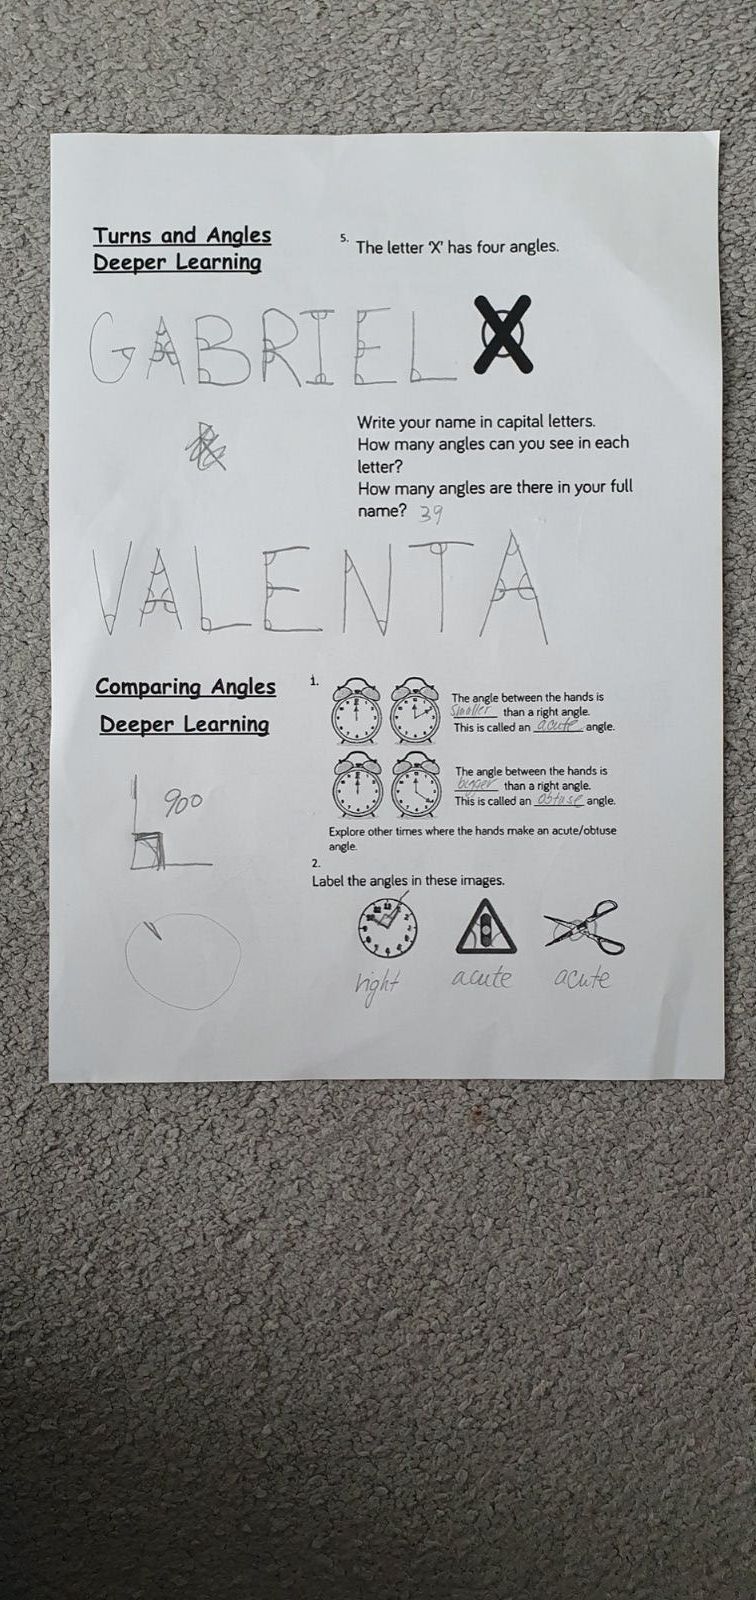 Turns and Angles
Deeper Learning
5. The letter 'X' has four angles.
GABRIEL
X
Write your name in capital letters.
How many angles can you see in each
letter?
How many angles are there in your full
name? 39
VALENTA
Comparing Angles
Deeper Learning
1.
The angle between the hands is
smaller than a right angle.
This is called an acute angle.
The angle between the hands is
bigger than a right angle.
This is called an obtuse angle.
90°
Explore other times where the hands make an acute/obtuse
angle.
2.
Label the angles in these images.
right acute acute